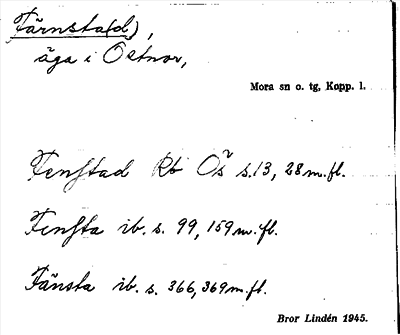 Färnsta(d),
äga i Östnor,
Mora sn o. tg, Kopp. l.
Fenstad Rb Ös s. 13, 28 m. fl.
Fensta ib. s. 99, 159 m. fl.
Fänsta ib. s. 366, 369 m. fl.
Bror Lindén 1945.